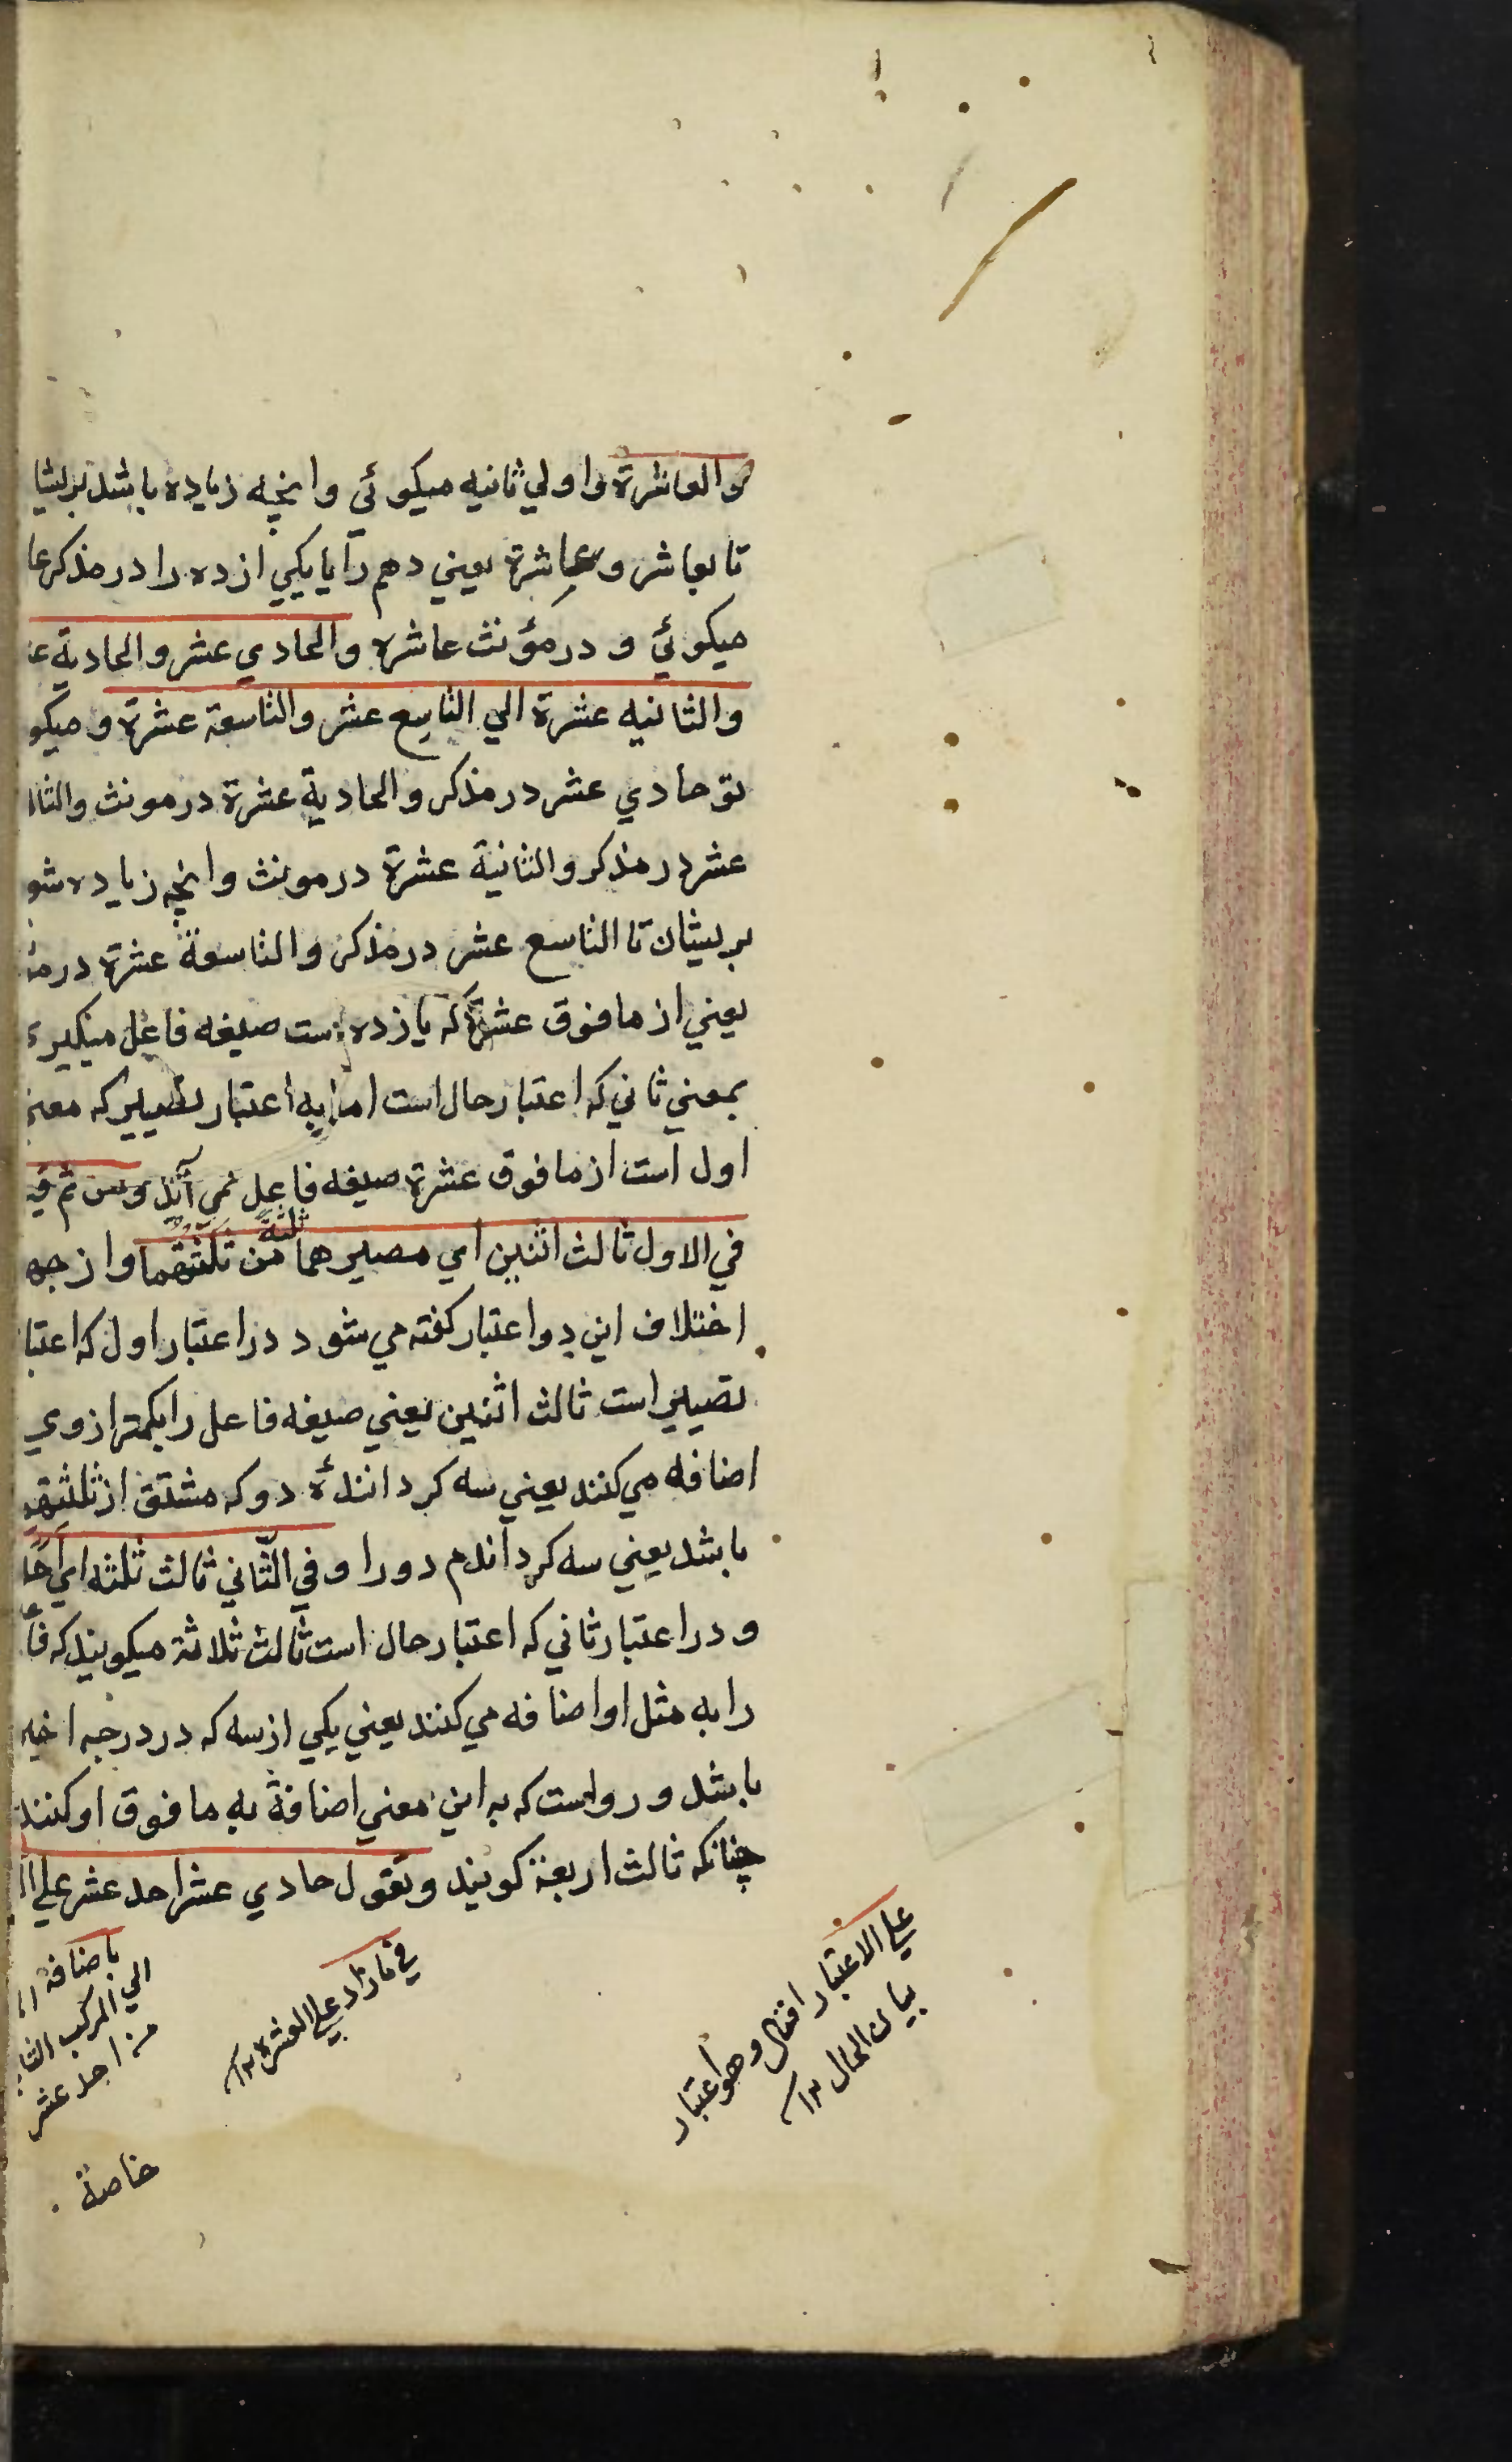 والعاشرة واولي ثانيه ميكوئي وانچه زياده باشد بريشا
تا بعاشر وعاشرة يعني دهم را يا يكي از ده را در مذكر عا
ميكوئي و در مؤنث عاشره والحادي عشر والحادية
والثانيه عشرة الي التاسع عشر والتاسعة عشرة و ميكو
تو حادي عشر در مذكر والحادية عشرة در مونث والثا
عشر در مذكر والثانية عشرة در مونث وانچه زياده شو
بريشان تا التاسع عشر در مذكر والتاسعة عشرة در
يعني از مافوق عشرة كه يازده است صيغه فاعل ميكيري
بمعني ثاني كه اعتبار حال است اما به اعتبار تصيير كه معني
اول است از مافوق عشرة صيغه فاعل نمي آيد ومن ثم قيل
في الاول ثالث اثنين اي مصيرهما ثلثة من ثلثتهما واز جهة
اختلاف اين دو اعتبار كفته مي شود در اعتبار اول كه اعتبا
تصيير است ثالث اثنين يعني صيغه فاعل را بكمتر از وي
اضافه مي كنند يعني سه كردانندۀ دو كه مشتق از ثلثتهم
باشد يعني سه كرداندم دو را وفي الثاني ثالث ثلثه اي احد
ودر اعتبار ثاني كه اعتبار حال است ثالث ثلاثة ميكويند كه فا
را به مثل او اضافه مي كنند يعني يكي از سه كه در درجه اخير
باشد و رواست كه به اين معني اضافة به مافوق او كنند
چنانكه ثالث اربعة كويند وتقول حادي عشر احد عشر علي
علي الاعتبار الثاني وهو اعتبار
بيان الحال ١٢
في ما زاد علي العشرة ١٢
باضافه
الي المركب الثا
من احد عشر
خاصة